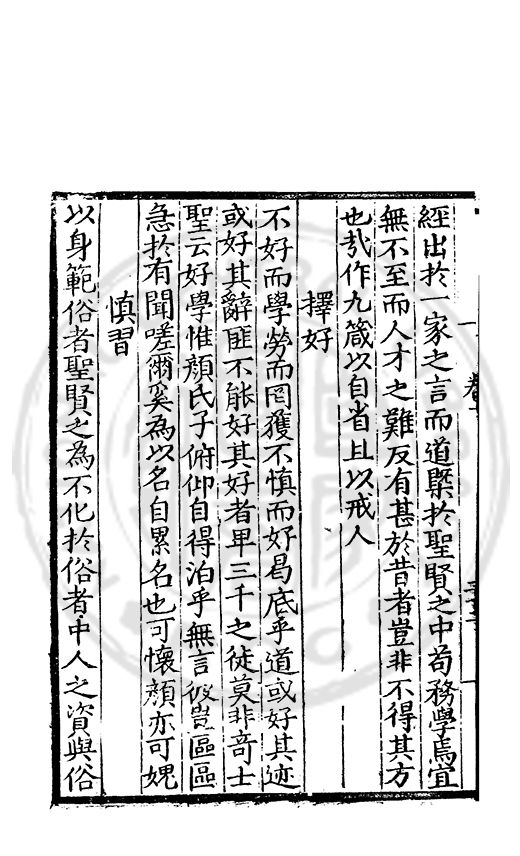 經出於一家之言而道槩於聖賢之中苟務學焉宜
無不至而人才之難反有甚於昔者豈非不得其方
也㢤作九箴以自省且以戒人
擇好
不好而學勞而罔獲不慎而好曷底乎道或好其迹
或好其辭匪不能好其好者卑三千之徒莫非竒士
聖云好學惟顔氏子俯仰自得泊乎無言彼豈區區
急於有聞嗟爾奚為以名自累名也可懷顔亦可媿
慎習
以身範俗者聖賢之為不化於俗者中人之資與俗